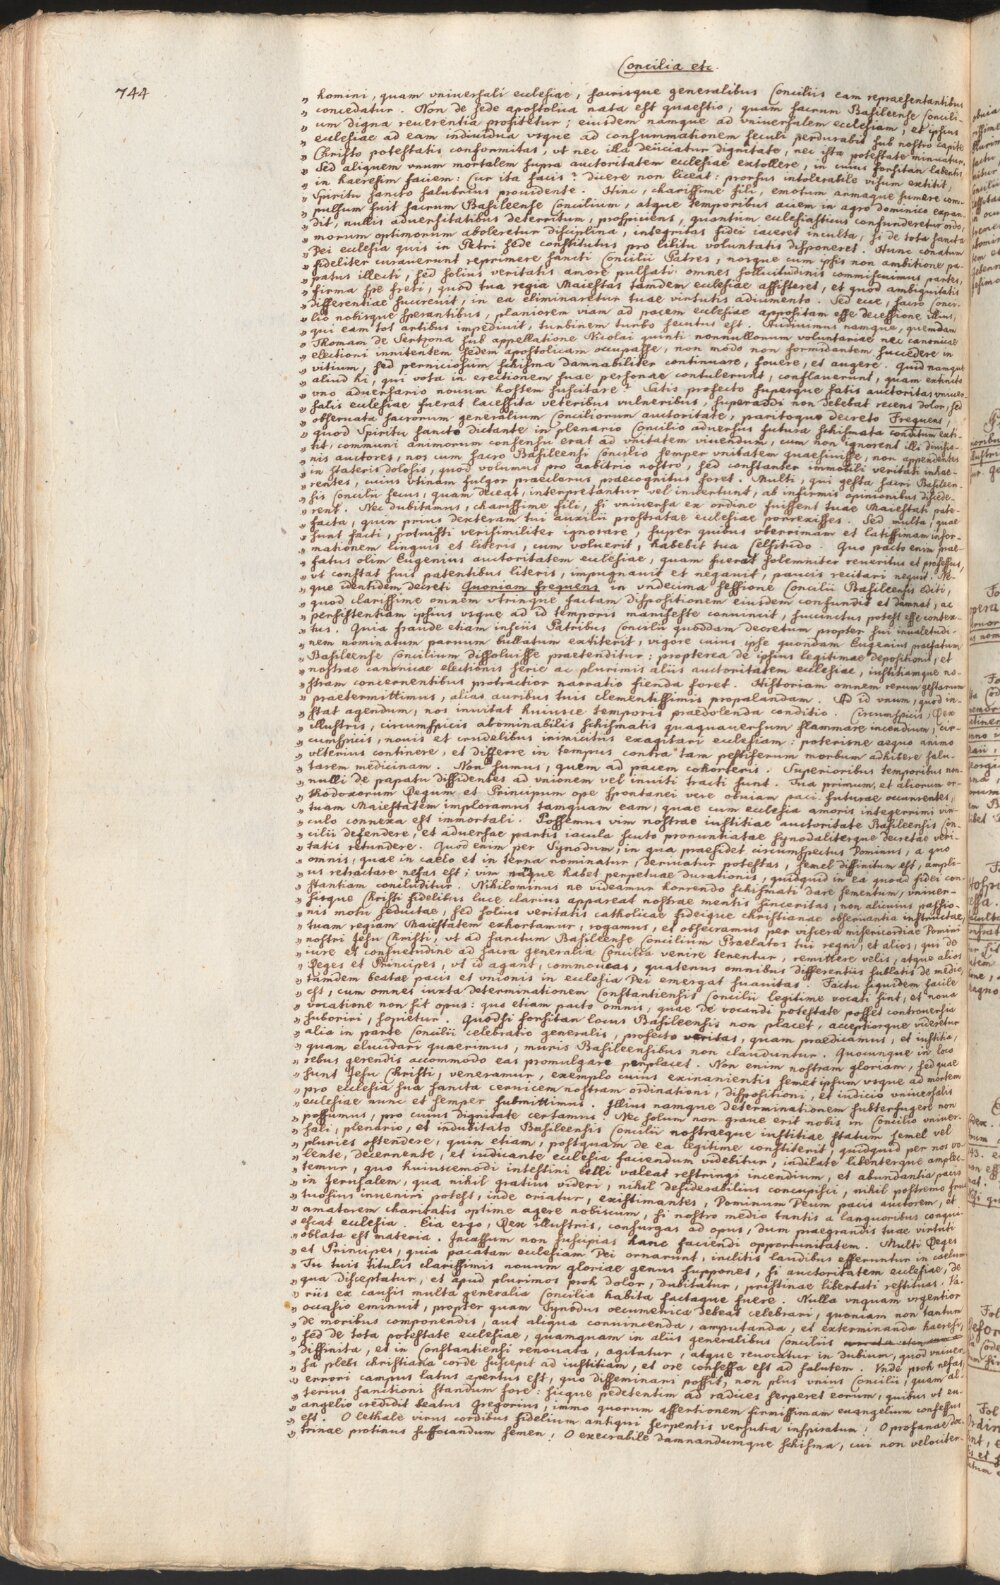 Concilia etc.
744
„ homini, quam vniuersali ecclesiae, sacrisque generalibus Conciliis eam repraesentantibus
„ concedatur. Non de sede apostolica nata est quaestio, quam sacrum Basileense Concili-
„ um digna reuerentia profitetur; eiusdem namque ad vniuersalem ecclesiam, et ipsius
„ ecclesiae ad eam indiuidua vsque ad consummationem seculi perdurabit sub nostro capite
„ Christo potestatis conformitas, vt nec illa deiiciatur dignitate, nec ista potestate minuatur.
„ Sed aliquem vnum mortalem supra auctoritatem ecclesiae extollere, in cuius forsitan labentis
„ in haeresim faciem: Cur ita facis? dicere non liceat: prorsus intolerabile visum extitit,
„ Spiritu sancto salubrius prouidente. Hinc, charissime fili, emotum armaque sumere com-
„ pulsum fuit sacrum Basileense Concilium, atque temporibus aciem in agro dominico expan-
„ dit, nullis aduersitatibus deterritum, prospiciens, quantum ecclesiasticus confunderetur ordo,
„ morum optimorum aboleretur disciplina, integritas fidei iaceret inculta, si de tota sancta
„ Dei ecclesia quis in Petri sede constitutus pro libitu voluntatis disponeret. Hunc conatum
„ fideliter curauerunt reprimere sancti Concilii Patres, nosque cum ipsis non ambitione pa-
„ patus illecti, sed solius veritatis amore pulsati omnes sollicitudinis commisimus partes,
„ firma spe freti, quod tua regia Maiestas tandem ecclesiae assisteret, et quod ambiguitatis
„ differentiae succreuit, in ea eliminaretur tuae virtutis adiumento. Sed ecce, sacro Conci-
„ lio nobisque sperantibus, planiorem viam ad pacem ecclesiae appositam esse decessione illius,
„ qui eam tot artibus impediuit, turbinem turbo secutus est. Audiuimus namque, quemdam
„ Thomam de Sertzona sub appellatione Nicolai quinti nonnullorum voluntariae nec canonicae
„ electioni innitentem sedem apostolicam occupasse, non modo non formidantem succedere in
„ vitium, sed perniciosum schisma damnabiliter continuare, fouere, et augere. Quid namque
„ aliud hi, qui vota in erectionem suae personae contulerunt, conflauerunt, quam extincto
„ vno aduersario nouum hostem suscitare? Satis profecto superque satis auctoritas vniuer-
„ salis ecclesiae fuerat lacessita veteribus vulneribus, superaddi non debebat recens dolor, sed
„ obseruata sacrorum generalium Conciliorum auctoritate, paritoque decreto Frequens,
„ quod Spiritu sancto dictante in plenario Concilio aduersus futura schismata conditum exti-
„ tit, communi animorum consensu erat ad vnitatem viuendum, cum non ignorent illi diuisio-
„ nis auctores, nos cum sacro Basileensi Concilio semper vnitatem quaesiuisse, non appendentes
„ in stateris dolosis, quod volumus pro arbitrio nostro, sed constanter immobili veritati inhae-
„ rentes, cuius vtinam fulgor praeclarus, praecognitus foret. Multi, qui gesta sacri Basileen-
„ sis Concilii secus, quam deceat, interpretantur vel inuertunt, ab infirmis opinionibus discede-
„ rent. Nec dubitamus, charissime fili, si vniuersa ex ordine fuissent tuae Maiestati pate-
„ facta, quin prius dexteram tui auxilii prostratae ecclesiae porrexisses. Sed multa, quae
„ sunt facti, potuisti verisimiliter ignorare, super quibus vberrimam et latissimam infor-
„ mationem linguis et literis, cum voluerit, habebit tua Celsitudo. Quo pacto enim prae-
„ fatus olim Eugenius auctoritatem ecclesiae, quam fuerat solemniter reueritus et professus,
„ vt constat suis patentibus literis, impugnauit et negauit, paucis recitari nequit. Ne-
„ que identidem decreti Quoniam frequens in vndecima sessione Concilii Basileensis editi,
„ quod clarissime omnem vtrinque factam dispositionem eiusdem confundit et damnat, ac
„ persistentiam ipsius vsque ad id temporis manifeste conuincit, succinctus potest esse contex-
„ tus. Qua fraude etiam insciis Patribus Concilii quoddam decretum propter sui inualetudi-
„ nem nominatum paruum bullatum extiterit, vigore cuius ipse quondam Eugenius praefatum
„ Basileense Concilium dissoluisse praetenditur; propterea de ipsius legitimae depositionis, et
„ nostrae canonicae electionis serie ac plurimis aliis auctoritatem ecclesiae, iustitiamque no-
„ stram concernentibus protractior narratio fienda foret. Historiam omnem rerum gestarum
„ praetermittimus, alias auribus tuis clementissimis propalandam. Ad id vnum, quod in-
„ stat agendum, nos inuitat huiusce temporis praedolenda conditio. Circumspicis, Rex
„ illustris, circumspicis abominabilis schismatis quaquauersum flammare incendium, cir-
„ cumspicis, nouis et crudelibus inimicitiis exagitari ecclesiam: poterisne aequo animo
„ vlterius continere, et differre in tempus contra tam pestiferum morbum adhibere salu-
„ tarem medicinam. Non sumus, quem ad pacem cohorteris. Superioribus temporibus non-
„ nulli de papatu diffidentes ad vnionem vel inuiti tracti sunt. Tua primum, et aliorum or-
„ thodoxorum Regum et Principum ope spontanei vere obuiam paci futurae occurrentes,
„ tuam Maiestatem imploramus tamquam eam, quae cum ecclesia amoris integerrimi vin-
„ culo connexa est immortali. Possemus vim nostrae iustitiae auctoritate Basileensis Con-
„ cilii defendere, et aduersae partis iacula scuto pronuntiatae synodaliterque decretae veri-
„ tatis retundere. Quod enim per Synodum, in qua praesidet circumspectus Dominus, a quo
„ omnis, quae in caelo et in terra nominatur, deriuatur potestas, semel diffinitum est, ampli-
„ us retractare nefas est; vim namque habet perpetuae durationis, quidquid in ea quoad fidei con-
„ stantiam concluditur. Nihilominus ne videamur horrendo schismati dare fomentum, vniuer-
„ sisque Christi fidelibus luce clarius appareat nostrae mentis sinceritas, non alicuius passio-
„ nis motu seductae, sed solius veritatis catholicae fideique christianae obseruantia instructae,
„ tuam regiam Maiestatem exhortamur, rogamus, et obsecramus per viscera misericordiae Domini
„ nostri Jesu Christi, vt ad sanctum Basileense Concilium Praelatos tui regni, et alios, qui de
„ iure et consuetudine ad sacra generalia Concilia venire tenentur, remittere velis, atque alios
„ Reges et Principes, vt id agant, commoueas, quatenus omnibus differentiis sublatis de medio,
„ tandem beatae pacis et vnionis in ecclesia Dei emergat suauitas. Factu siquidem facile
„ est, cum omnes iuxta determinationem Constantiensis Concilii legitime vocati sint, et noua
„ vocatione non sit opus: quo etiam pacto omnis, quae de vocandi potestate posset controuersia
„ suboriri, sopietur. Quodsi forsitan locus Basileensis non placet, acceptiorque videretur
„ alia in parte Concilii celebratio generalis, profecto veritas, quam praedicamus, et iustitia,
„ quam elucidari quaerimus, muris Basileensibus non clauduntur. Quocunque in loco
„ rebus gerendis accommodo eas promulgare perplacet. Non enim nostram gloriam, sed quae
„ sunt Jesu Christi, veneramur, exemplo cuius exinanientis semet ipsum vsque ad mortem
„ pro ecclesia sua sancta ceruicem nostram ordinationi, dispositioni, et iudicio vniuersalis
„ ecclesiae nunc et semper submittimus. Illius namque determinationem subterfugere non
„ possumus, pro cuius dignitate certamus. Nec solum non graue erit nobis in Concilio vniuer-
„ sali, plenario, et indubitato Basileensis Concilii nostraeque iustitiae statum semel vel
„ pluries ostendere, quin etiam, postquam de ea legitime constiterit, quidquid per nos vo-
„ lente, decernente, et iudicante ecclesia faciendum videbitur, indilate libenterque amplec-
„ temur, quo huiuscemodi intestini belli valeat restringi incendium, et abundantia pacis
„ in Jerusalem, qua nihil gratius videri, nihil desiderabilius concupisci, nihil postremo fruc-
„ tuosius inueniri potest, inde oriatur, existimantes, Dominum Deum pacis auctorem, et
„ amatorem charitatis optime agere nobiscum, si nostro medio tantis a languoribus conqui-
„ escat ecclesia. Eia ergo, Rex illustris, consurgas ad opus, dum praegrandis tuae virtuti
„ oblata est materia. Incassum non suscipias hanc faciendi opportunitatem. Multi Reges
„ et Principes, quia pacatam ecclesiam Dei ornarunt, inclitis laudibus efferuntur in caelum.
„ Tu tuis titulis clarissimis nouum gloriae genus suppones, si auctoritatem ecclesiae, de
„ qua disceptatur, et apud plurimos proh dolor, dubitatur, pristinae libertati restituas. Va-
„ riis ex causis multa generalia Concilia habita factaque fuere. Nulla vnquam vrgentior
„ occasio eminuit, propter quam Synodus oecumenica debeat celebrari, quoniam non tantum
„ de moribus componendis, aut aliqua conuincenda, amputanda, et exterminanda haeresi,
„ sed de tota potestate ecclesiae, quamquam in aliis generalibus Conciliis
„ diffinita, et in Constantiensi renouata, agitatur, atque reuocatur in dubium, quod vniuer-
„ sa plebs christiana corde suscepit ad iustitiam, et ore confessa est ad salutem. Vnde proh nefas,
„ errori campus latus apertus est, quo disseminari possit, non plus vnius Concilii, quam al-
„ terius sanctioni standum fore: sicque pedetentim ad radices serperet eorum, quibus vt eu-
„ angelio credidit beatus Gregorius, immo quorum assertionem firmissimam euangelium confessus
„ est. O lethale virus cordibus fidelium antiqui serpentis versutia inspiratum! O profanae doc-
„ trinae protinus suffocandum semen! O execrabile damnandumque schisma, cui non velociter